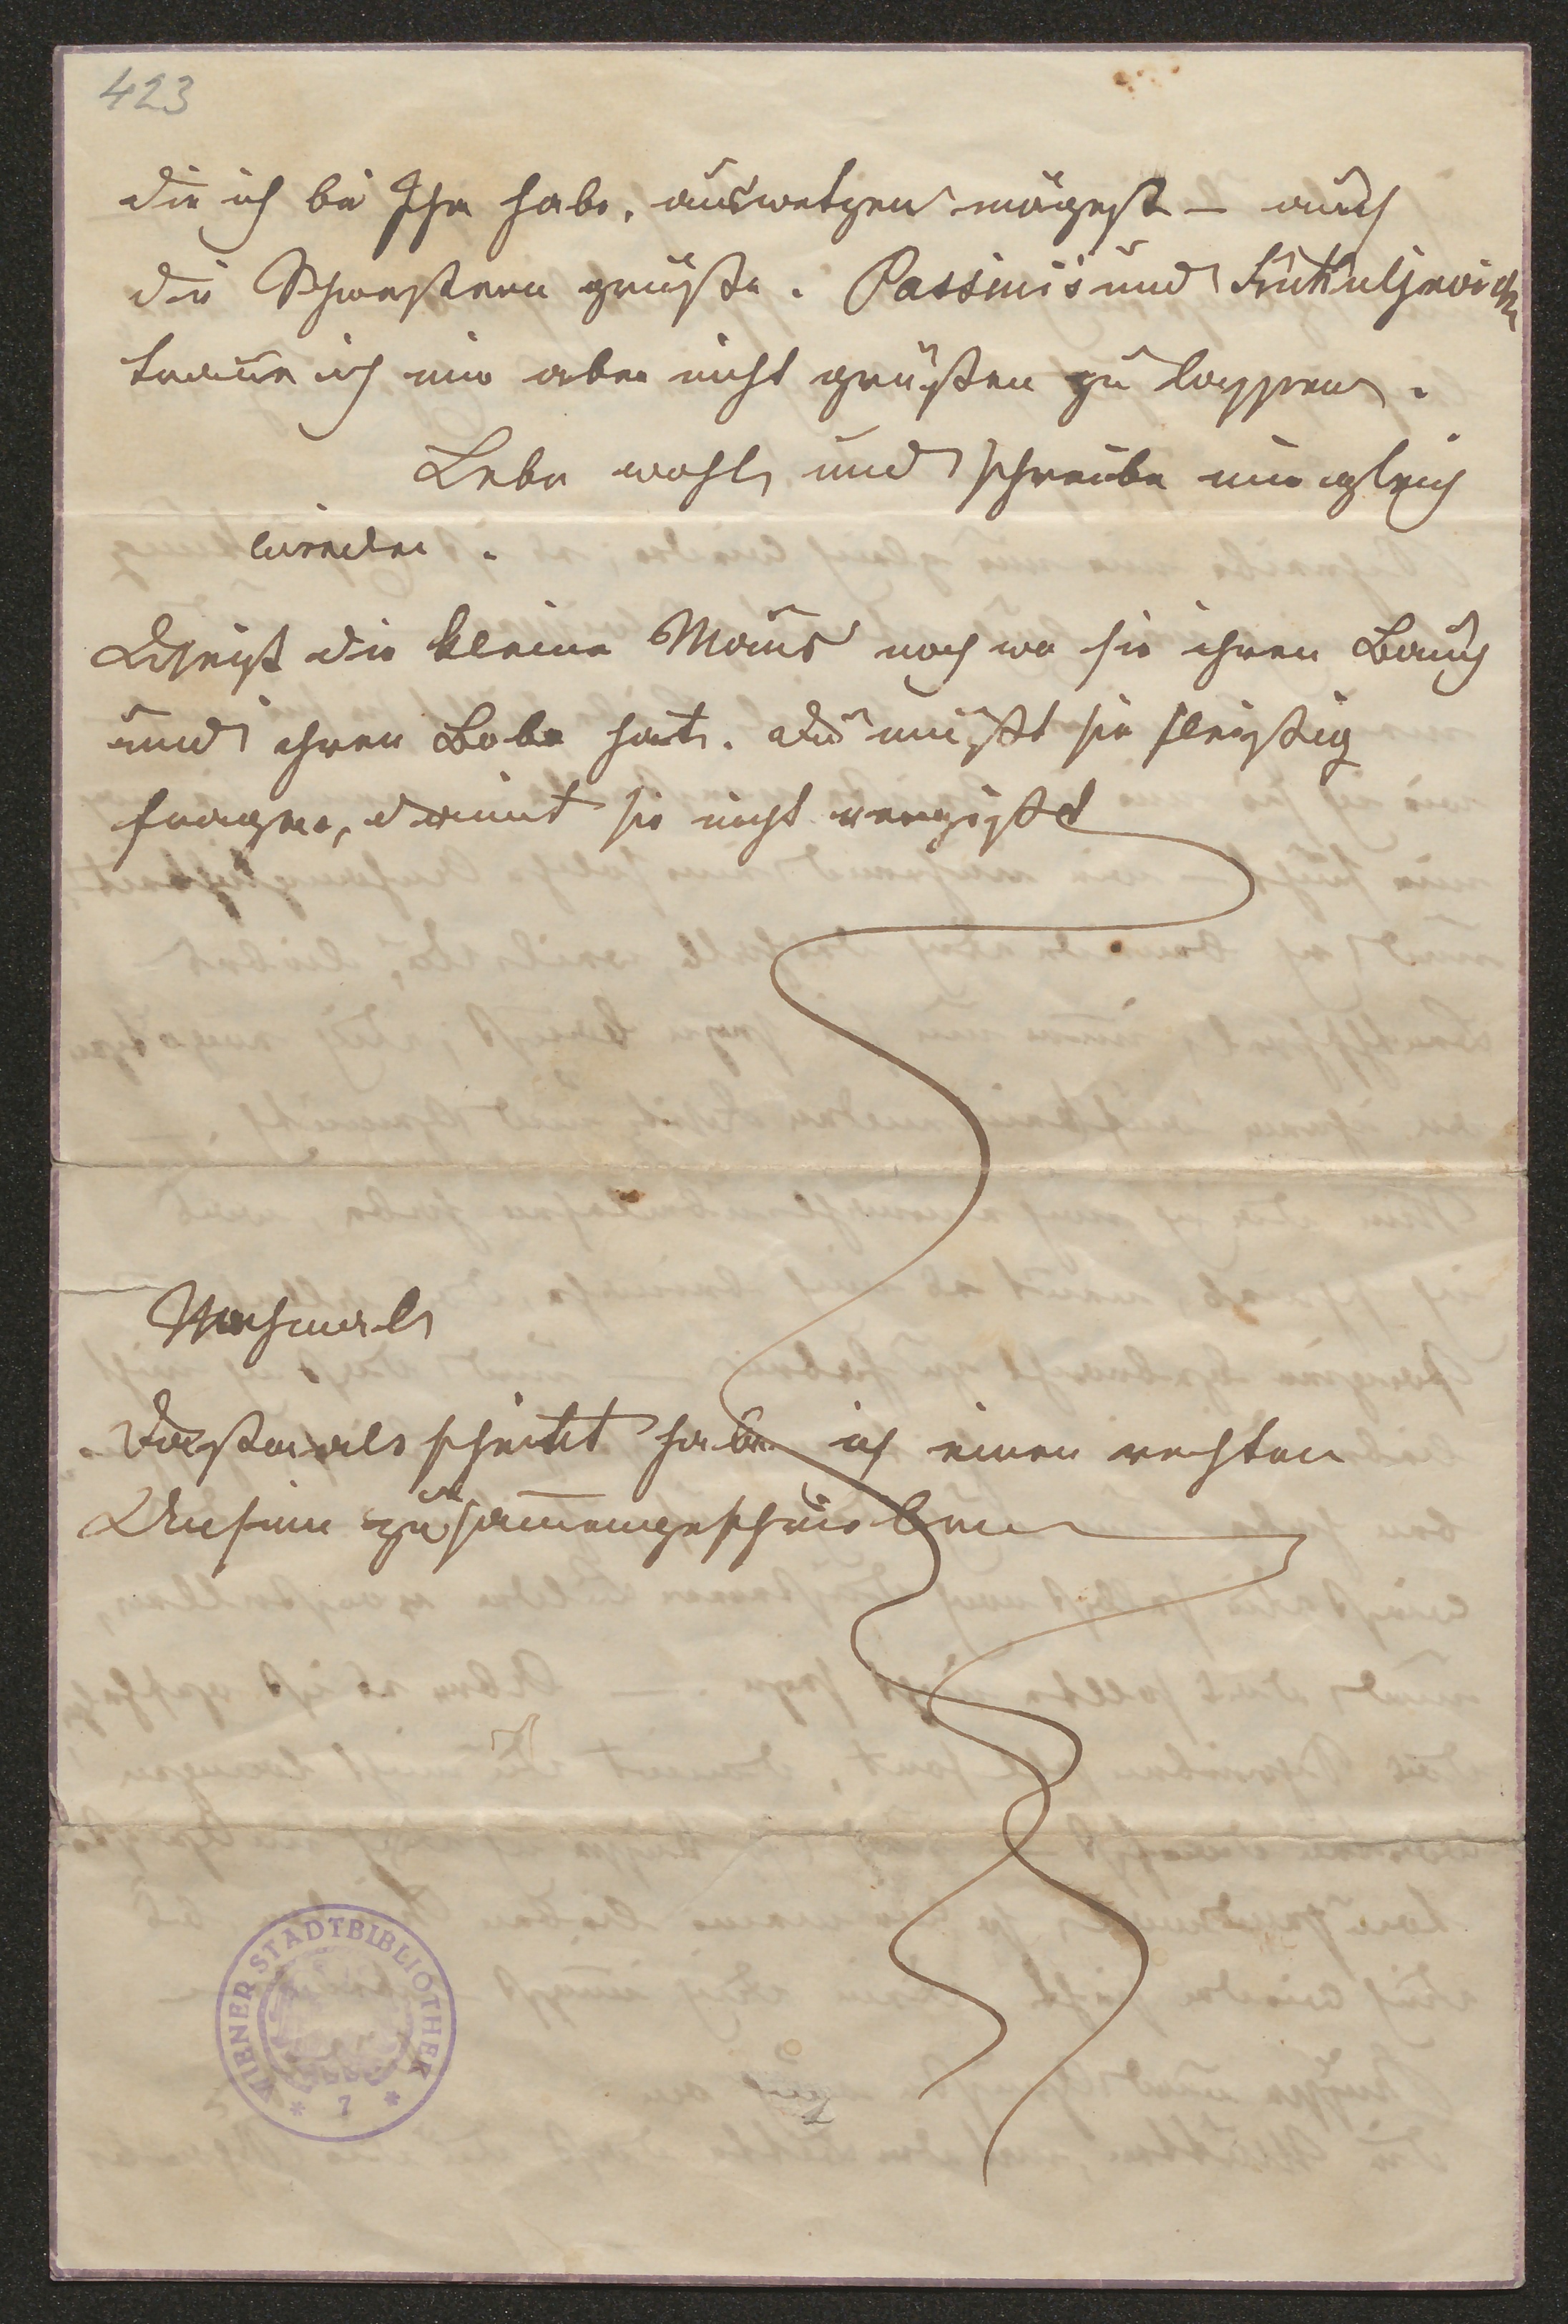 423
die ich bei Ihr habe, auswetzen mögest – auch
die Schwestern grüße. Passinis und
traue ich mir aber nicht grüßen zu lassen.
Lebe wohl und schreibe mir gleich
wieder.
Weiß die kleine Maus noch wo sie ihren Bauch
und ihren hat. Du mußt sie fleißig
fragen, damit sie nicht vergißt
Nochmals
als habe ich einen rechten
Unsinn zusammengeschrieben
WIENER STADTBIBLIOTHEK
* 7 *